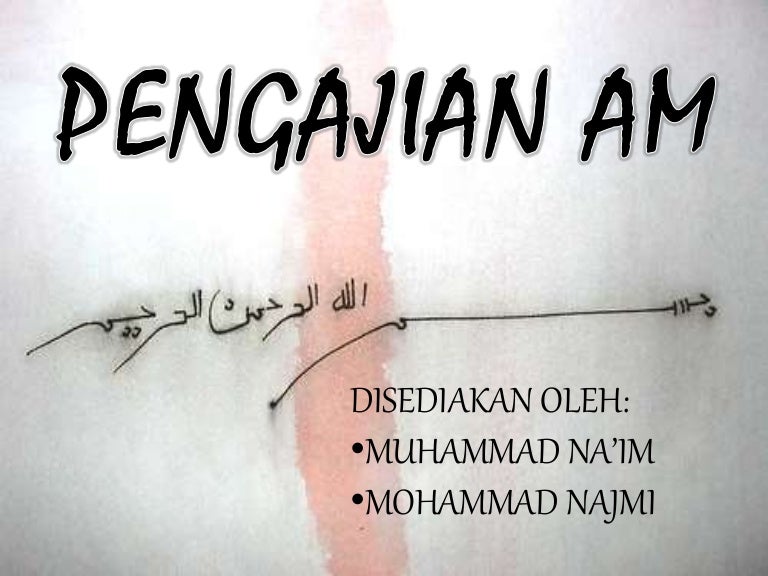 PENGAJIAN AM
بسم الله الرحمن الرحيم
DISEDIAKAN OLEH:
•MUHAMMAD NA'IM
•MOHAMMAD NAJMI